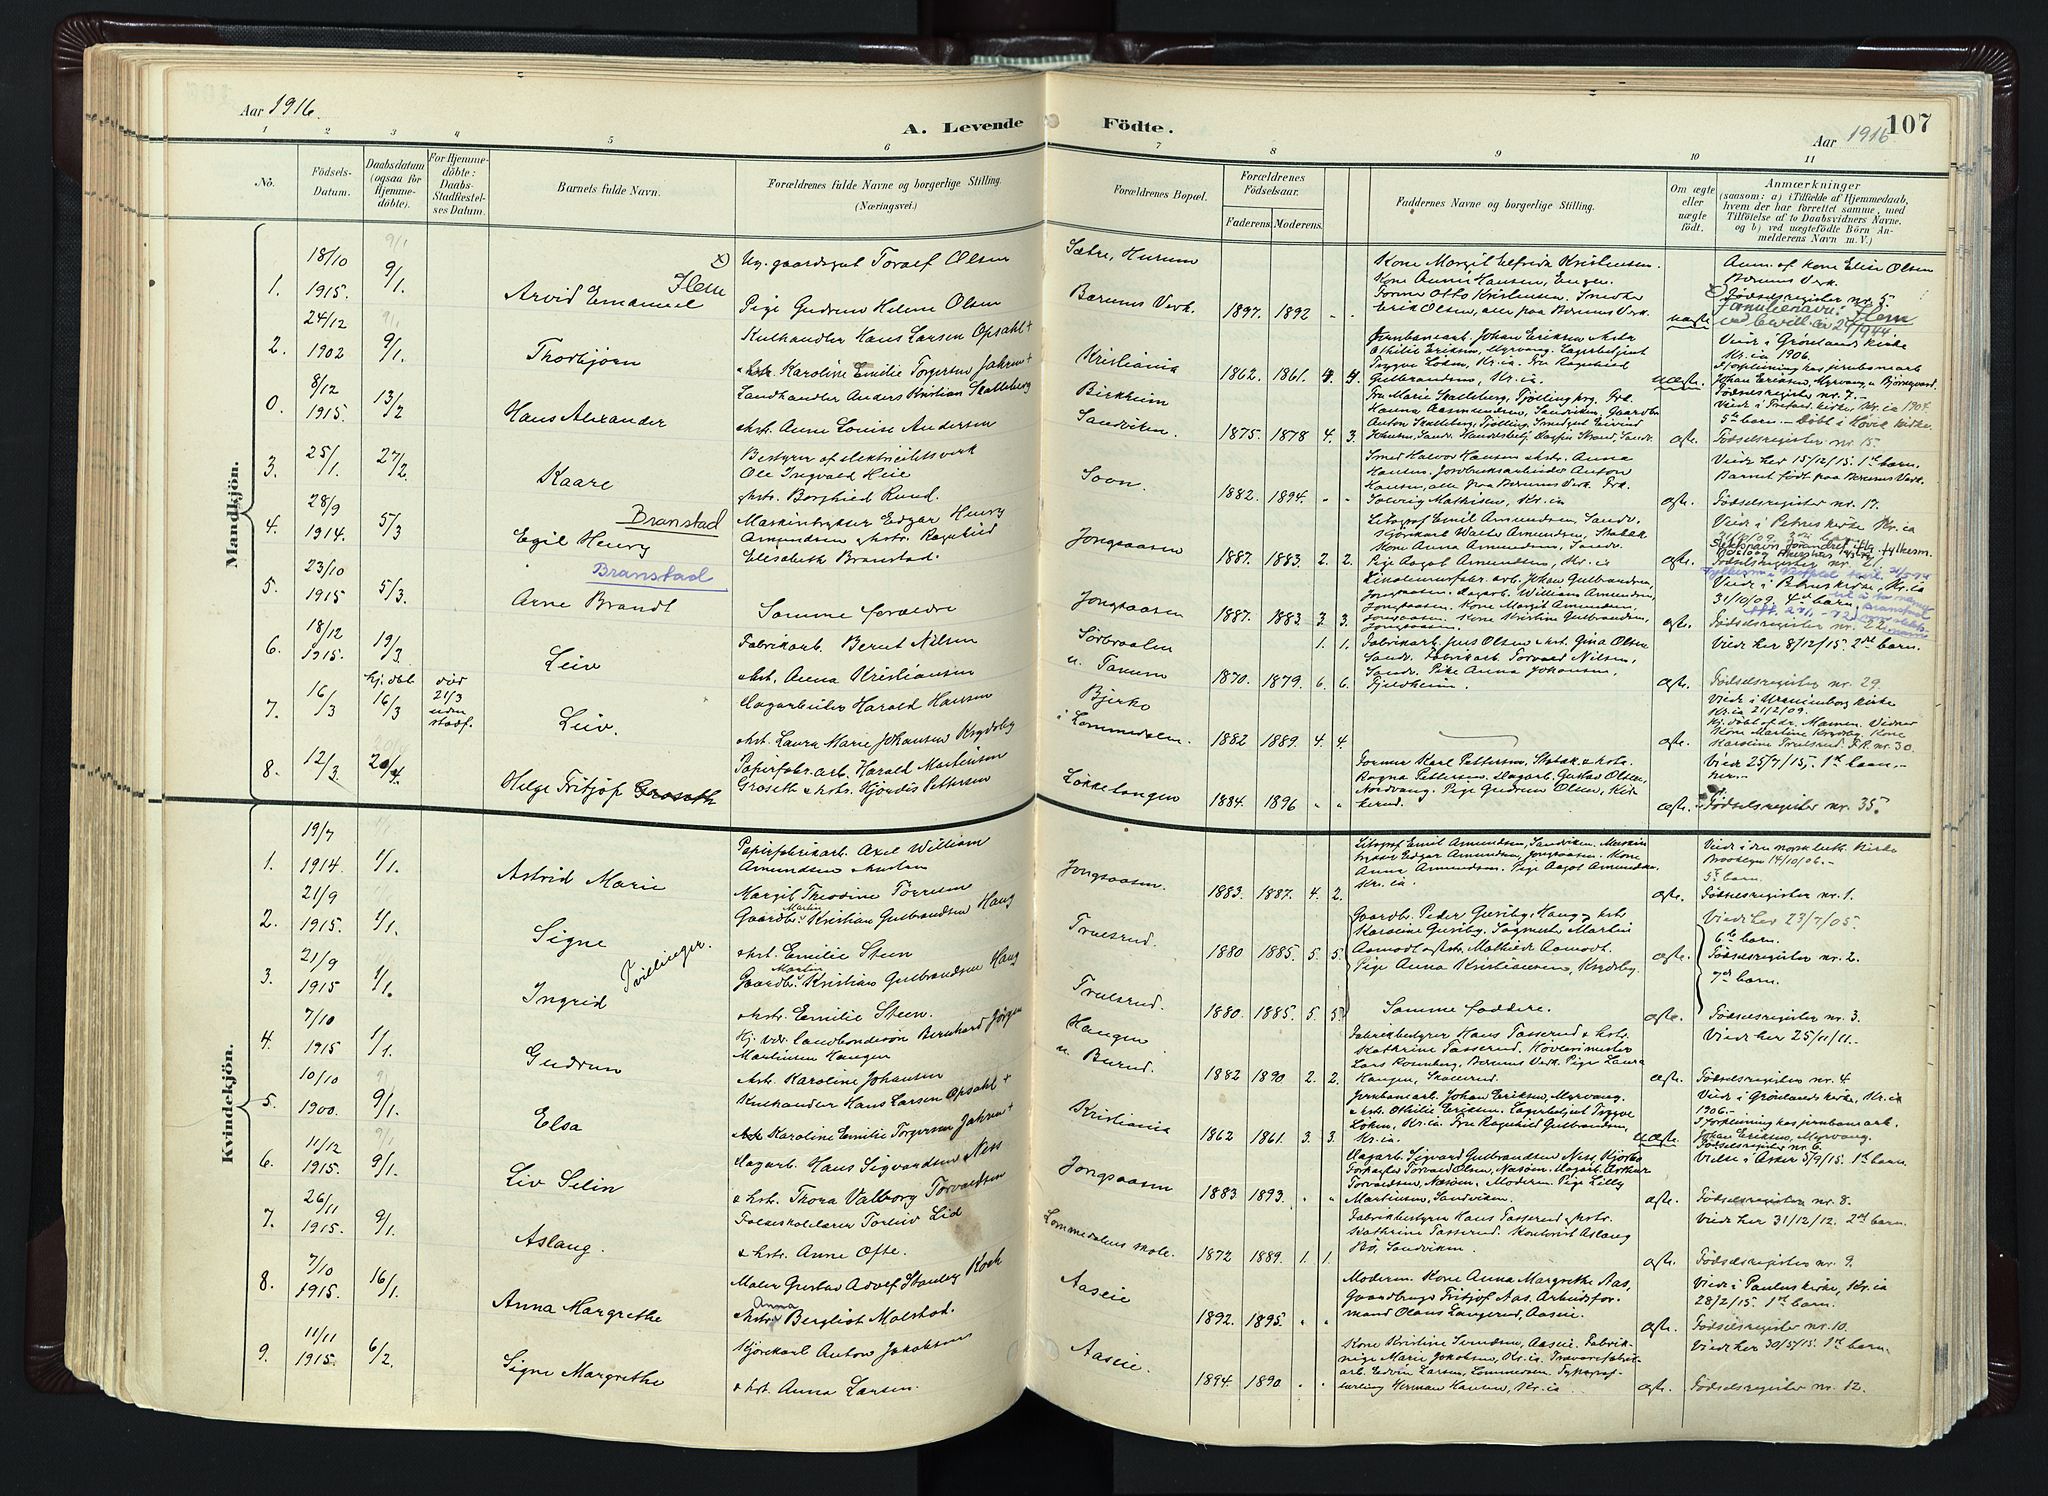 Aar 1916.
A. Levende Födte.
107
Aar 1916
1 2 3 4 5 6 7 8 9 10 11
No.
Födsels-Datum.
Daabsdatum (ogsaa for Hjemmedöbte).
For Hjemmedöbte: Daabs-Stadfæstelses Datum.
Barnets fulde Navn.
Forældrenes fulde Navne og borgerlige Stilling.
(Næringsvei.)
Forældrenes Bopæl.
Forældrenes Födselsaar.
Faderens. Moderens.
Faddernes Navne og borgerlige Stilling.
Om ægte eller uægte födt.
Anmærkninger
(saasom: a) i Tilfælde af Hjemmedaab, hvem der har forrettet samme, med Tilföielse af to Daabsvidners Navne. og b) ved uægtefödte Börn Anmelderens Navn m. V.)
Mandkjön.
1. 18/10 1915. 9/1. Arvid Emanuel Flem
Ug. gaardsgut Toralf Olsen
Pige Gudrun Helene Olsen
Sætre, Hurum
Bærums Verk.
1897. 1892 - -
Kone Margit Elfrida Kristensen.
Kone Anna Hansen, Engen.
Former Otto Kristensen, Smed
Erik Olsen, alle paa Bærums Verk.
uægte
Anm. af kone Elise Olsen
Bærums Verk.
Födselsregister nr. 5.
Familienavn: Flem
2. 24/12 1902 9/1. Thorbjørn
Kulhandler Hans Larsen Opsahl +
Karoline Emilie Torgersen Jahren +
Kristiania
1862. 1861. 4. 4.
Jernbanearb. Johan Eriksen & hstr.
Othilie Eriksen, Myrvang. Lagerbetjent
Trygve Löken, Kr.ia. Fru Ragnhild
Gulbrandsen, Kr.ia.
uægte
Viede i Grönlands kirke
Kr.ia 1906.
I forpleining hos jernbanearb.
Johan Eriksen, Myrvang
Födselsregister nr. 7.
0. 8/12 1915. 13/2 Hans Alexander
Landhandler Anders Kristian Skalleberg
& hst. Anne Louise Andersen
Birkheim
Sandviken.
1875. 1878 4. 3.
Fru Marie Skalleberg, Tjölling
Hanna Aasmundsen, Sandviken, Gaardbr.
Anton Skalleberg, Tjölling
ægte.
5te barn. Döbt i Høvik kirke.
Födselsregister nr. 15.
3. 25/1. 27/2. Kaare
Bestyrer af elektricitetsverk
Ole Ingvald Heie
& hstr. Borghild Rund.
Soon.
1882. 1894. - -
Smed Halvor Hansen & hstr. Anna
Hansen, Jordbruksarbeider Anton
Hansen, alle paa Bærums Verk. Frk.
Solveig Mathisen, Kr.ia
ægte.
Viede her 15/12/15. 1ste barn.
Barnet födt paa Bærums Verk.
Födselsregister nr. 17.
4. 28/9 1914. 5/3 Egil Henry Branstad
Maskintrykker Edgar Henry
Amundsen & hstr. Ragnhild
Elisabeth Branstad.
Jongsaasen
1887. 1883. 2. 2.
Litograf Emil Amundsen, Sandv.
Kjörkarl Walter Amundsen, Stabæk
Kone Anna Amundsen, Sandv.
Pige Aagot Amundsen, Kr.ia
ægte.
Viede i Petrus kirke Kr.ia
Födselsregister nr. 21.
5. 23/10 1915 5/3. Arne Brandt Branstad
Samme forældre
Jongsaasen
1887. 1883. 3. 3.
Johan Gulbrandsen,
Jongsaasen. Dagarb. William Amundsen,
Jongsaasen. Kone Margit Amundsen,
Kone Kristine Gulbrandsen,
Jongsaasen.
ægte.
Viede i Petrus kirke, Kr.ia
31/10/09. 4de barn.
Födselsregister nr. 22.
6. 18/12 1915. 19/3. Leiv
Fabrikarb. Bernt Nilsen
& hst. Anna Kristiansen
Sörbraaten
u. Tanum
1870. 1879. 6. 6.
1. 1.
Fabrikarb. Jens Olsen & hst. Gina Olsen
Sandv. Fabrikarb. Torvald Nilsen,
Sandv. Pike Anna Johansen,
Fjeldheim.
ægte.
Viede her 8/12/15. 2det barn.
Födselsregister nr. 29.
7. 16/3 hj. dbt. 16/3 död 21/3 uden stadf. Leiv.
Dagarbeider Harald Hansen
& hst. Laura Marie Johansen Krydsby
Bjerke
i Lommedalen.
1882 1889. 4. 4.
ægte.
Viede i Uranienborg kirke
Kr.ia 21/2/09.
Hj. döbt af dr. Mamen. Vidner
Kone Martine Krydsby. Kone
Karoline Truelsrud. F.R. nr. 30.
8. 12/3. 20/4. Helge Fritjof Groseth
Papirfabr.arb. Harald Martinsen
Groseth & hstr. Hjördis Pettersen
Løkkelangen
1884. 1896 " "
Former Karl Pettersen, Stabæk & hstr.
Ragna Pettersen. Dagarb. Gustav Olsen,
Nordvang. Pige Gudrun Olsen,
ægte.
Viede 25/7/15. 1ste barn.
her.
Födselsregister nr. 35.
Kvindekjön.
1. 19/7 1914. 1/1. Astrid Marie
Papirfabrikarb. Axel William
Amundsen & hustru
Margit Theodine Törresen
Jongsaasen.
1883. 1887. 4. 2.
Litograf Emil Amundsen, Sandviken. Maskin-
trykker Edgar Amundsen, Jongsaasen. Kone
Anna Amundsen. Pige Aagot Amundsen.
Kr.ia.
ægte.
Viede i den norsk luth. kirke
Brooklyn 14/10/06.
5te barn.
Födselsregister nr. 1.
2. 21/9 1915. 1/1. Signe
Tvillinger.
Gaardbr. Martin Kristian Gulbrandsen Haug
& hst. Emilie Steen
Truelsrud.
1880 1885. 5. 5.
Gaardbr. Peder Guriby, Haug, & hstr.
Karoline Guriby. Sagmester Martin
Aamodt og hstr. Mathilde Aamodt.
Pige Anna Kristiansen, Krydsby.
ægte.
Viede her 23/7/05.
6te barn.
Födselsregister nr. 2.
3. 21/9 1915 1/1. Ingrid
Gaardbr. Martin Kristian Gulbrandsen Haug
& hstr. Emilie Steen.
Truelsrud.
1880. 1885. 5. 5.
Samme faddere.
ægte.
7de barn.
Födselsregister nr. 3.
4. 7/10 1915 1/1. Gudrun
Landbondesön Bernhard Jörgen
Martinsen Haugen
& hst. Karoline Johansen
Haugen
u. Burud.
1882 1890 2. 2.
Fabrikbestyrer Hans Tasserud & hstr.
Kathrine Tasserud. Hövlerimester
Lars Rosenberg, Bærums Verk. Pige Laura
Haugen, Skollerud.
ægte.
Viede her 25/11/11.
Födselsregister nr. 4
5. 10/10 1900. 9/1. Elsa
Kulhandler Hans Larsen Opsahl +
Karoline Emilie Torgersen Jahren +
Kristiania
1862 1861. 3. 3.
Jernbanearb. Johan Eriksen, Myrvang.
& hst. Othilie Eriksen. Lagerbetjent Trygve
Löken, Kr.ia. Fru Ragnhild Gulbrandsen,
Kr.ia.
uægte.
Viede i Grönlands kirke, Kr.ia
1906.
I forpleining hos jernbanearb.
Johan Eriksen, Myrvang.
Födselsregister nr. 6.
6. 11/12 1915. 9/1. Liv Selin
Dagarb. Hans Sigvardsen Ness
& hst. Thora Valborg Torvaldsen
Jongsaasen
1883 1893. " "
Dagarb. Sigvard Gulbrandsen Ness,
Forpagter Torvald Olsen, Nesöen. Dagarb. Arthur
Torvaldsen, Nesöen. Moderen. Pige Lilly
Martinsen, Sandviken.
ægte.
Viede i Asker 5/9/15. 1ste barn.
Födselsregister nr. 8.
7. 26/11 1915. 9/1. Aslaug.
Folkeskolelærer Torleiv Lid
& hstr. Anne Ofte.
Lommedalens skole.
1872 1889. 1. 1.
Fabrikbestyrer Hans Tasserud & hstr.
Kathrine Tasserud. Kontorist Aslaug
Bö, Sandviken.
ægte.
Viede her 31/12/12. 2det barn.
Födselsregister nr. 9.
8. 7/10 1915. 16/1. Anna Margrethe
Maler Gustav Adolf Stanley Koch
& hstr. Anna Bergliot Malstad.
Aaseie
1892. 1895. " "
Moderen. Kone Anna Margrethe Aas,
Gaardbruger Fritjof Aas. Arbeidsfor-
mand Olaus Langerud, Aaseie.
ægte.
Viede i Paulus kirke, Kr.ia
28/2/15. 1ste barn.
Födselsregister nr. 10.
9. 11/11 1915. 6/2. Signe Margrethe
Kjörekarl Anton Jakobsen
& hst. Anna Larsen.
Aaseie.
1894. 1890. - -
Kone Kristine Svendsen, Aaseie. Fabrik-
pige Marie Jakobsen, Kr.ia. Trævarefabrik-
arb. Edvin Larsen, Lommedalen.
Herman Hansen, Kr.ia
ægte.
Viede her 30/5/15. 1ste barn.
Födselsregister nr. 12.